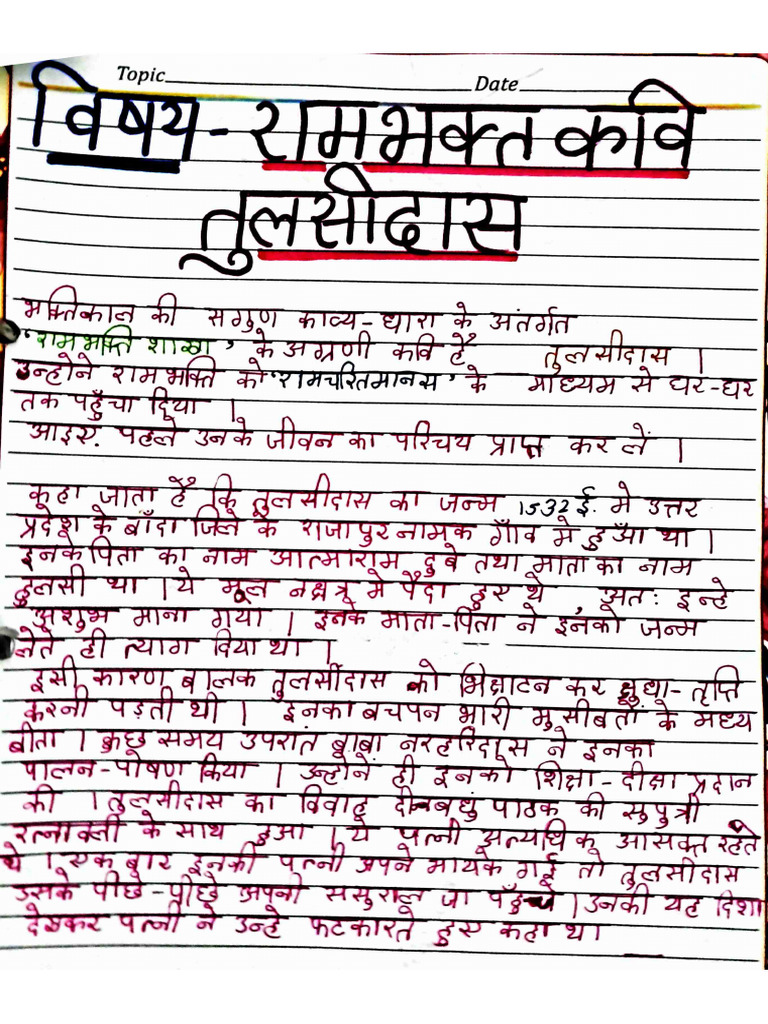 Topic Date
विषय - रामभक्त कवि
तुलसीदास
भक्तिकाल की सगुण काव्य-धारा के अंतर्गत
'रामभक्ति शाखा' के अग्रणी कवि हैं तुलसीदास ।
उन्होने रामभक्ति को 'रामचरितमानस' के माध्यम से घर-घर
तक पहुँचा दिया ।
आइए पहले उनके जीवन का परिचय प्राप्त कर लें ।
कहा जाता हैं कि तुलसीदास का जन्म 1532 ई. मे उत्तर
प्रदेश के बाँदा जिले के राजापुर नामक गाँव मे हुआँ था ।
इनके पिता का नाम आत्माराम दुबे तथा माता का नाम
हुलसी था । ये मूल नक्षत्र मे पैदा हुए थे , अतः इन्हे
अशुभ माना गया । इनके माता-पिता ने इनको जन्म
लेते ही त्याग दिया था ।
इसी कारण बालक तुलसीदास को भिक्षाटन कर क्षुधा-तृप्ति
करनी पड़ती थी । इनका बचपन भारी मुसीबतों के मध्य
बीता । कुछ समय उपरांत बाबा नरहरिदास ने इनका
पालन-पोषण किया । उन्होनें ही इनको शिक्षा-दीक्षा प्रदान
की । तुलसीदास का विवाह दीनबंधु पाठक की सुपुत्री
रत्नावली के साथ हुआ । ये पत्नी अत्यधिक आसक्त रहते
थे । एक बार इनकी पत्नी अपने मायके गई तो तुलसीदास
उसके पीछे-पीछे अपनी ससुराल जा पहुँचे । उनकी यह दिशा
देखकर पत्नी ने उन्हे फटकारते हुए कहा था